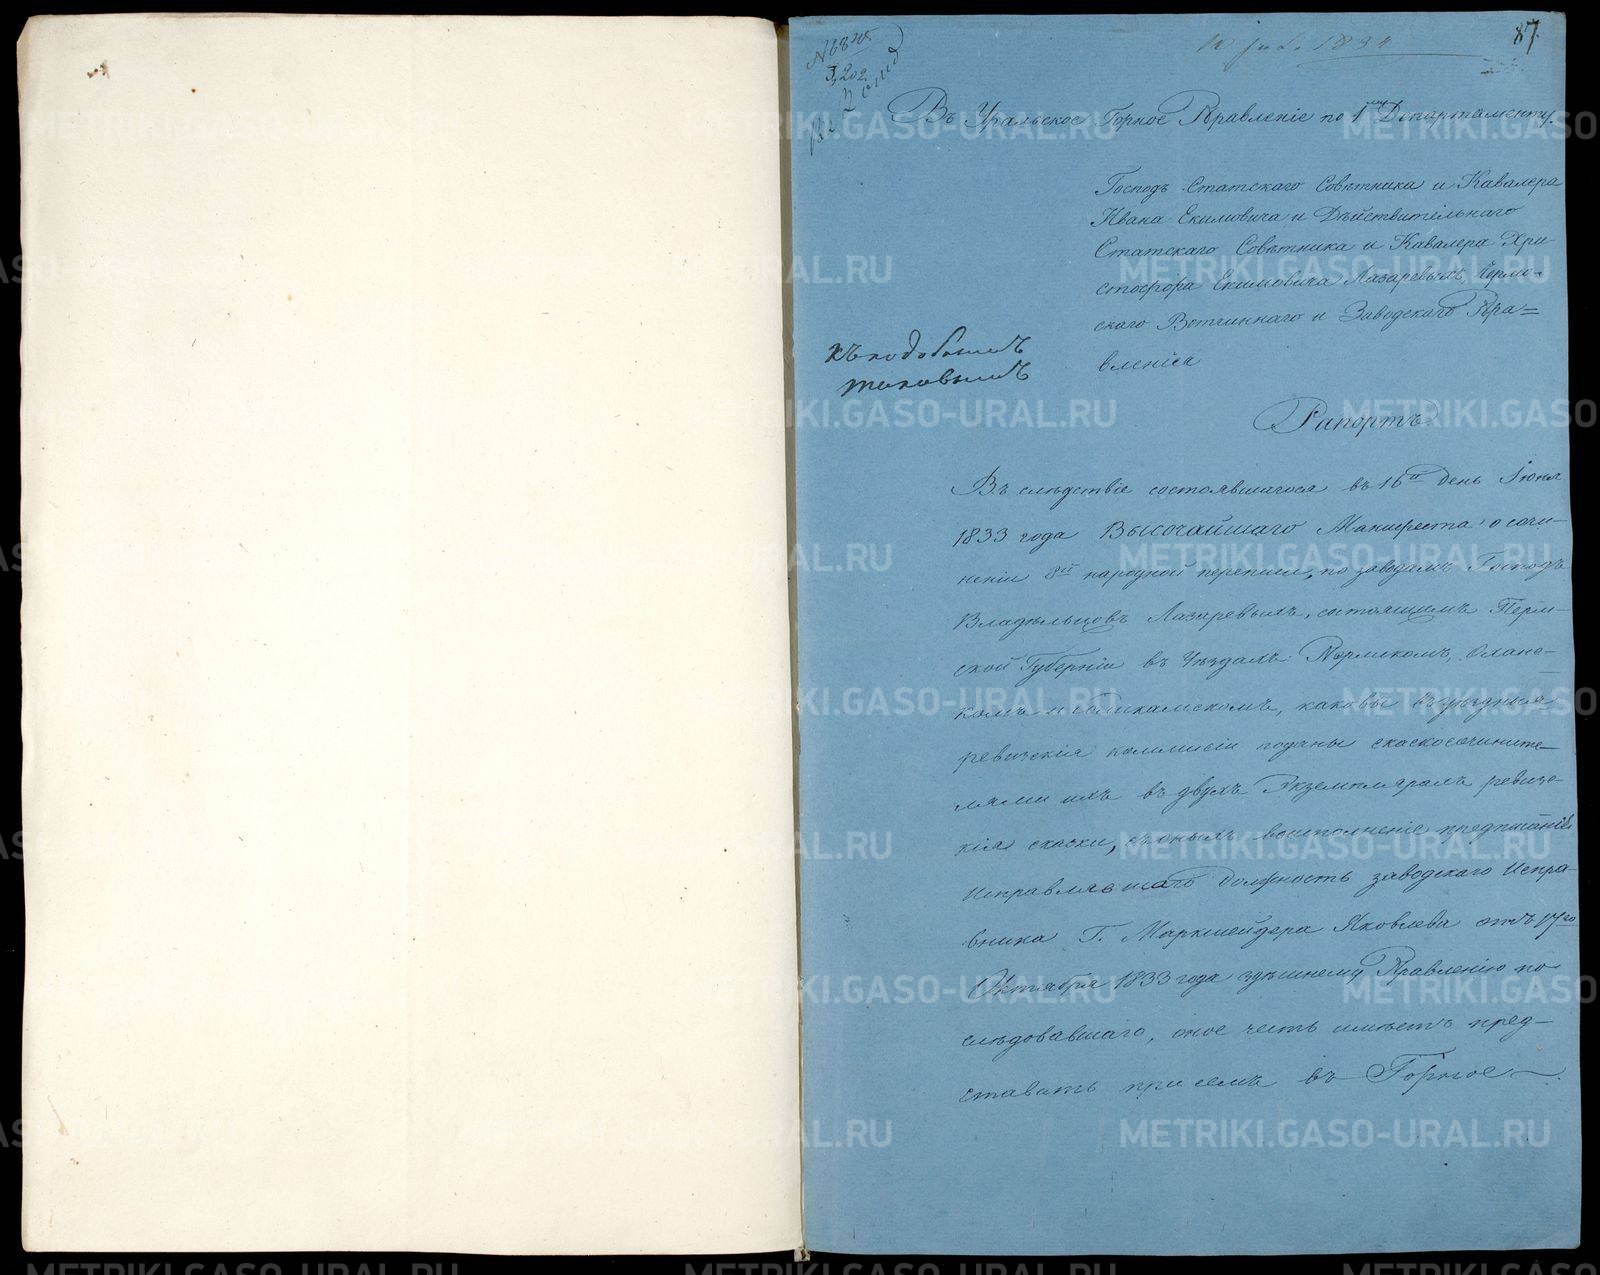 № 6825
87.
Въ Уральское Горное Правленіе по 1му Департаменту.
Господъ Статскаго Совѣтника и Кавалера
Ивана Екимовича и Дѣйствительнаго
Статскаго Совѣтника и Кавалера Хри-
стофора Екимовича Лазаревыхъ, Чермо-
скаго Вотчиннаго и Заводскаго Пра=
вленія
къ подобнымъ
таковымъ
Рапортъ
Въ слѣдствіе состоявшагося въ 16й день Іюня
1833 года Высочайшаго Манифеста о сочи-
неніи 8й народной переписи, по заводамъ Господъ
Владѣльцовъ Лазаревыхъ, состоящимъ Перм-
ской Губерніи въ Уѣздахъ Пермскомъ, Оханс-
комъ и Соликамскомъ, каковы въ уѣздныя
ревизскія коммисіи поданы скаскосочините-
лями ихъ въ двухъ Экземплярахъ ревизс-
кія скаски, съ оныхъ во исполненіе предписанія
исправлявшаго должность заводскаго Испра-
вника Г. Маркшейдера Яковлева отъ 17го
Октября 1833 года здѣшнему Правленію по
слѣдовавшаго, оное честь имѣетъ пред-
ставить при семъ въ Горное
METRIKI.GASO-URAL.RU